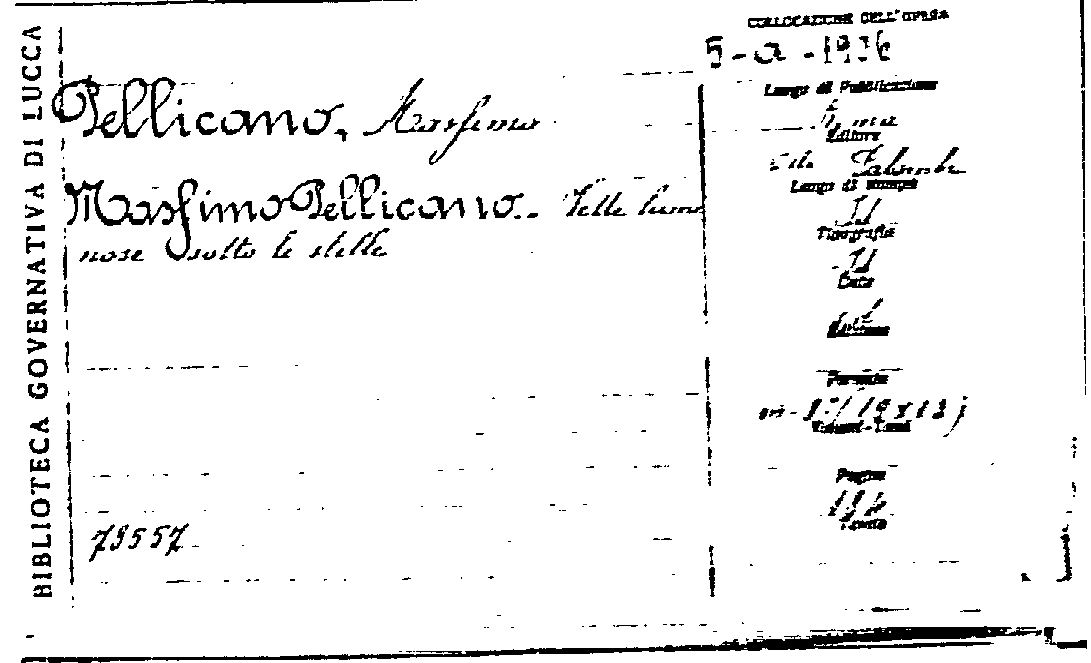 BIBLIOTECA GOVERNATIVA DI LUCCA
COLLOCAZIONE DELL'OPERA
5-a-1936
Pellicano, Massimo
Massimo Pellicano. Vette lumi
nose sotto le stelle
73557
Luogo di Pubblicazione
Roma
Editore
Palombi
Luogo di Stampa
Id
Tipografia
Id
Data
Edizione
Formato
in-8°(19x13)
Volumi-Tomi
Pagine
Tavole